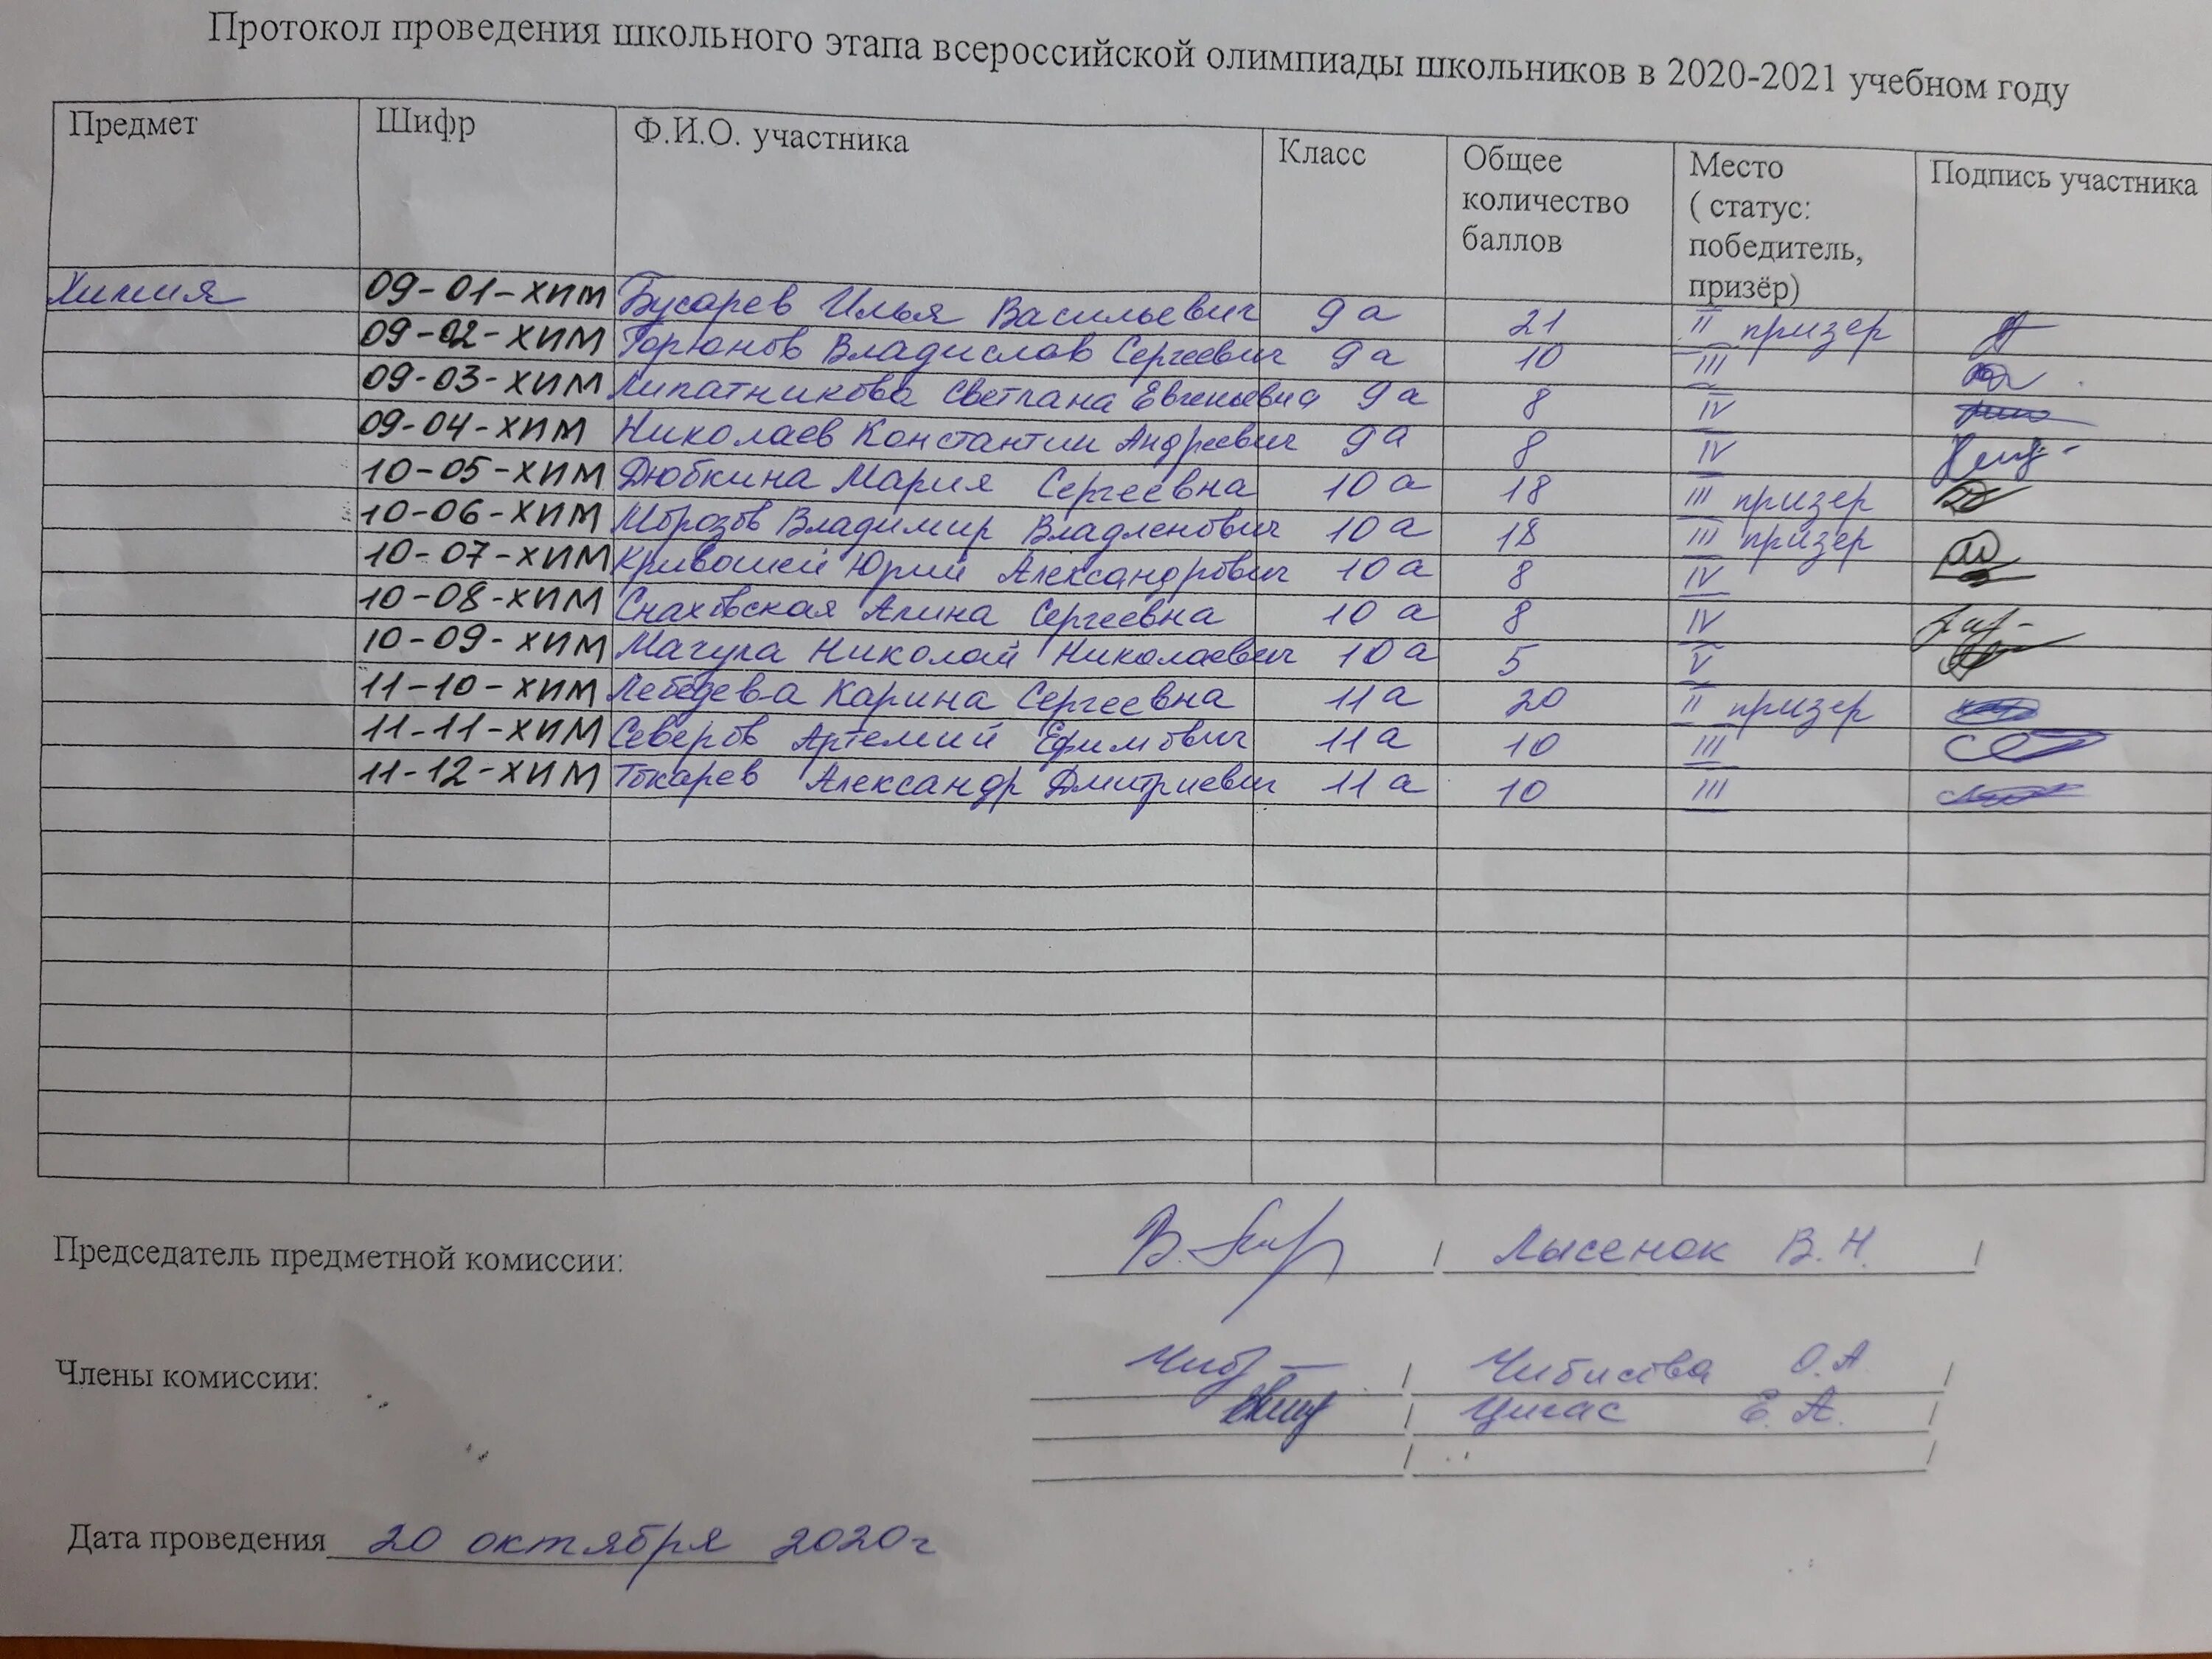 Протокол проведения школьного этапа всероссийской олимпиады школьников в 2020-2021 учебном году
Предмет Шифр Ф.И.О. участника Класс Общее количество баллов Место ( статус: победитель, призёр) Подпись участника
Химия 09-01-ХИМ Бусарев Илья Васильевич 9а 21 II призер
09-02-ХИМ Горюнов Владислав Сергеевич 9а 10 III
09-03-ХИМ Липатникова Светлана Евгеньевна 9а 8 IV
09-04-ХИМ Николаев Константин Андреевич 9а 8 IV
10-05-ХИМ Дюбкина Мария Сергеевна 10а 18 III призер
10-06-ХИМ Морозов Владимир Владленович 10а 18 III призер
10-07-ХИМ Кривошей Юрий Александрович 10а 8 IV
10-08-ХИМ Снаховская Алина Сергеевна 10а 8 IV
10-09-ХИМ Мачула Николай Николаевич 10а 5 V
11-10-ХИМ Лебедева Карина Сергеевна 11а 20 II призер
11-11-ХИМ Северов Артемий Ефимович 11а 10 III
11-12-ХИМ Токарев Александр Дмитриевич 11а 10 III
Председатель предметной комиссии: / Лысенок В.Н. /
Члены комиссии: / Чибисова О.А. /
/ Цигас Е.А. /
Дата проведения 20 октября 2020г